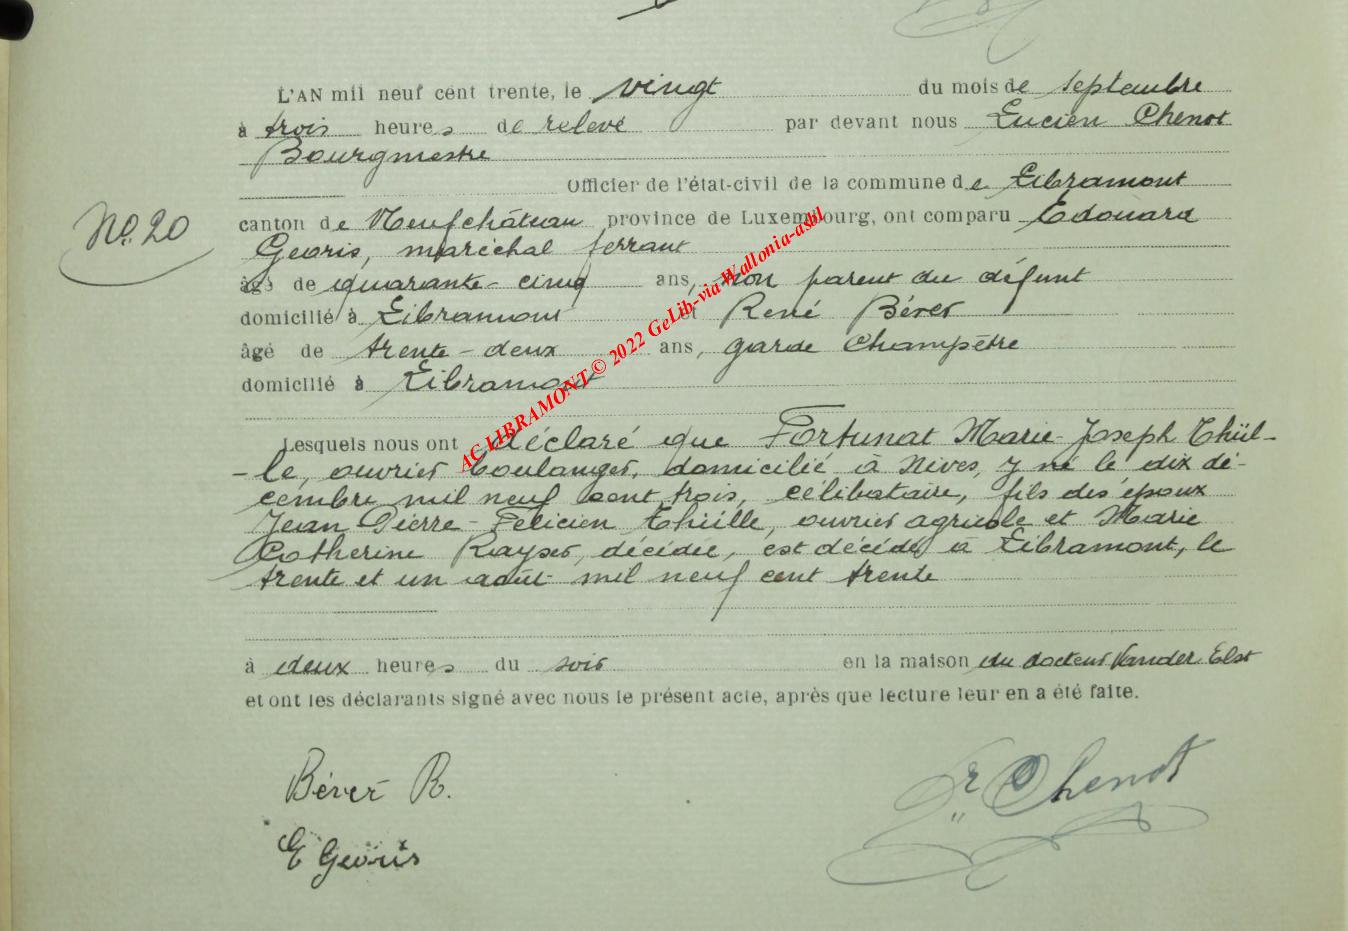 L'AN mil neuf cent trente, le vingt du mois de septembre
à trois heures de relevé par devant nous Lucien Chenot
Bourgmestre
Officier de l'état-civil de la commune de Libramont
No 20
canton de Neufchâteau province de Luxembourg, ont comparu Edouard
Georis, maréchal ferrant
âgé de quarante-cinq ans, non parent du défunt
domicilié à Libramont et René Béver
âgé de trente-deux ans, garde Champêtre
domicilié à Libramont
AC LIBRAMONT © 2022 GeLib-via Wallonia-asbl
Lesquels nous ont déclaré que Fortunat Marie-Joseph Thül-
-le, ouvrier boulanger, domicilié à Nives, y né le dix dé-
cembre mil neuf cent trois, célibataire, fils des époux
Jean Pierre-Félicien Thülle, ouvrier agricole et Marie
Catherine Kayser, décédée, est décédé à Libramont, le
trente et un août mil neuf cent trente
à deux heures du soir en la maison du docteur Vander Elst
et ont les déclarants signé avec nous le présent acte, après que lecture leur en a été faite.
Béver R.
Chenot
E Georis